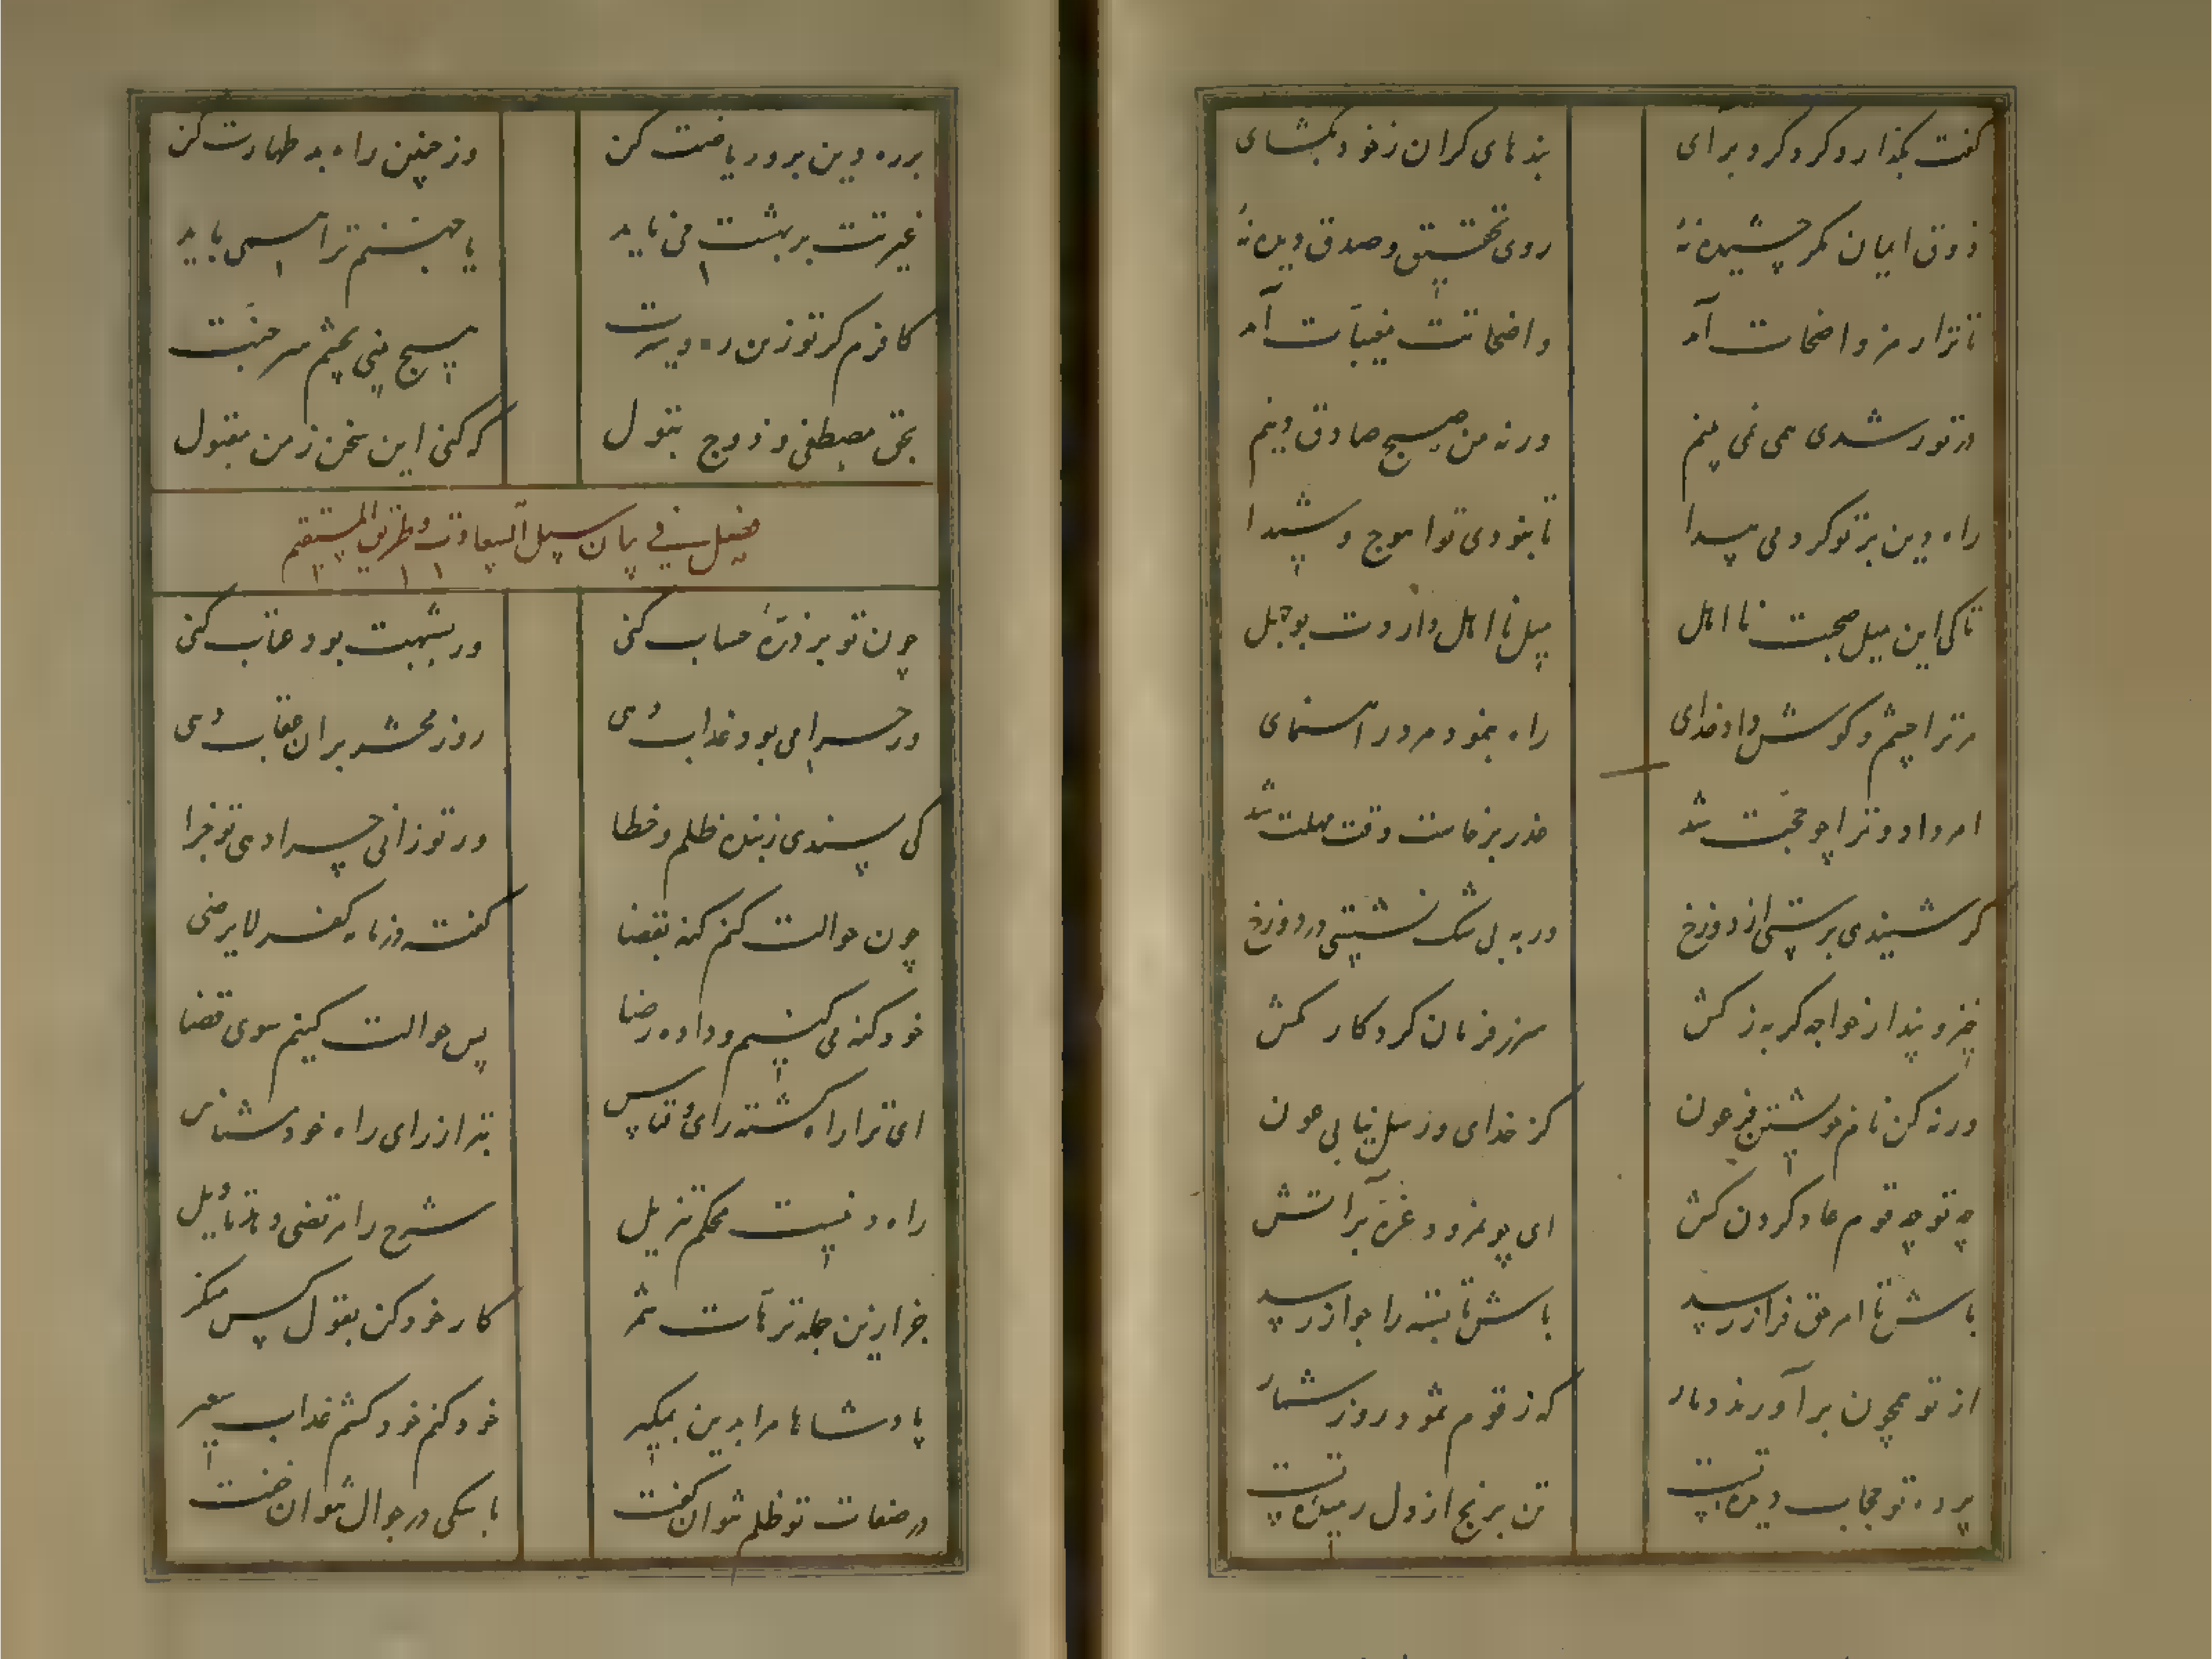 کفت بکذار و کرد کرد برآی
بندهای کران ز خود بکشای
ذوق ایمان مکر چشیده نهٔ
روی تحقیق و صدق دیده نهٔ
تا ترا رمز واضحات آمد
واضحاتت مغیبات آمد
در تو رشدی همی نمی بینم
ورنه من صبح صادق دینم
راه دین بر تو کردمی پیدا
تا نبودی تو اهوج و شیدا
تا کی این میل صحبت نااهل
میل نااهل داردت بوجهل
مر ترا چشم و کوش داد خدای
راه بنمود مرد راهنمای
امر داد و ترا چو حجت شد
عذر برخاست وقت مهلت شد
کر شنیدی برستی از دوزخ
ورنه بی شک نشستی در دوزخ
خیز و پندار خواجه کر به ز کش
سر ز فرمان کردکار مکش
ورنه کن نام خویشتن فرعون
کز خدای و رسل نیابی عون
چه تو چه قوم عاد کردن کش
ای چو نمرود غره بر آتش
باش تا امر حق فراز رسد
باش تا بسته را جواز رسد
از تو همچون برآورند دمار
که ز قوم ثمود روز شمار
پرده تو حجاب دیده تست
تن برنج از دل رمیده تست
بر ره دین برو ریاضت کن
وز چنین راه بد طهارت کن
غیرتت بر بهشت می ناید
یا جهنم ترا همی باید
کافرم کر تو زین ره و سیرت
هیچ بینی بچشم سر جنت
بحق مصطفی و زوج بتول
که کنی این سخن ز من مقبول
فصل فی بیان سبیل السعادت و طریق المستقیم
چون تو بر ذرهٔ حساب کنی
ور بشبهت بود عتاب کنی
ور حرامی بود عذاب دهی
روز محشر بران عقاب دهی
کی پسندی ز بنده ظلم و خطا
ور تو رانی چرا دهی تو جزا
چون حوالت کنم کنه بقضا
کفته در نامه کفر لایرضی
خود کنه می کنیم و داده رضا
پس حوالت کنیم سوی قضا
ای ترا راه کشته رای و قیاس
بتر از رای راه خود مشناس
راه دینست محکم تنزیل
شرح را مرتضی دهد تأویل
جز ازین جمله ترهات شمر
کار خود کن بقول کس منکر
پادشاها مرا بدین بمکیر
خود کنم خود کشم عذاب سعیر
در صفات تو ظلم نتوان کفت
با سکی در جوال نتوان خفت